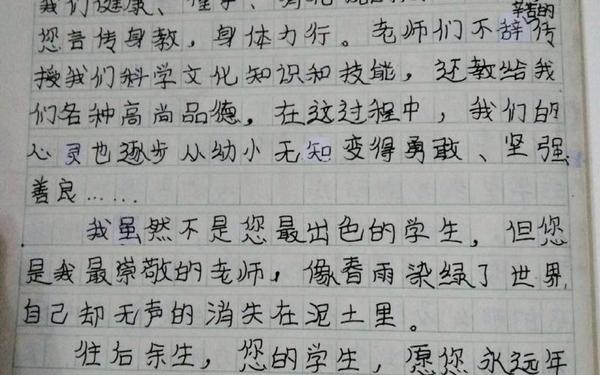 我们健康、
您言传身教，身体力行。老师们不辞辛苦的传
授我们科学文化知识和技能，还教给我
们各种高尚品德，在这过程中，我们的
心灵也逐步从幼小无知变得勇敢、坚强、
善良……
我虽然不是您最出色的学生，但您
是我最崇敬的老师，像春雨染绿了世界，
自己却无声的消失在泥土里。
往后余生，您的学生，愿您永远年